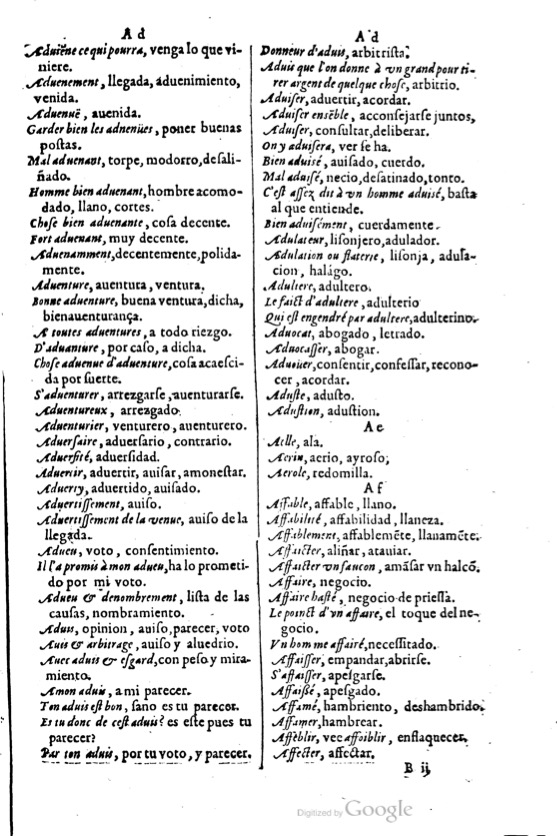 Ad
Aduiēne ce qui pourra, venga lo que vi-
niere.
Aduenement, llegada, aduenimiento,
venida.
Aduenuë, auenida.
Garder bien les aduenües, poner buenas
postas.
Mal aduenant, torpe, modorro, desali-
ñado.
Homme bien aduenant, hombre acomo-
dado, llano, cortes.
Chose bien aduenante, cosa decente.
Fort aduenant, muy decente.
Aduenamment, decentemente, polida-
mente.
Aduenture, auentura, ventura.
Bonne aduenture, buena ventura, dicha,
bienauenturança.
A toutes aduentures, a todo riezgo.
D'aduanture, por caso, a dicha.
Chose aduenue d'aduenture, cosa acaesci-
da por suerte.
S'aduenturer, arrezgarse, auenturarse.
Aduentureux, arrezgado.
Aduenturier, venturero, auenturero.
Aduersaire, aduersario, contrario.
Aduersité, aduersidad.
Aduertir, aduertir, auisar, amonestar.
Aduerty, aduertido, auisado.
Aduertissement, auiso.
Aduertissement de la venue, auiso de la
llegada.
Adueu, voto, consentimiento.
Il l'a promis à mon adueu, ha lo prometi-
do por mi voto.
Adueu & denombrement, lista de las
causas, nombramiento.
Aduis, opinion, auiso, parecer, voto
Auis & arbitrage, auiso y aluedrio.
Auec aduis & esgard, con peso y mira-
miento.
A mon aduis, a mi parecer.
Ton aduis est bon, sano es tu parecer.
Es tu donc de cest aduis? es este pues tu
parecer?
Par ton aduis, por tu voto, y parecer.
Ad
Donneur d'aduis, arbitrista.
Aduis que l'on donne à vn grand pour ti-
rer argent de quelque chose, arbitrio.
Aduiser, aduertir, acordar.
Aduiser ensēble, acconsejarse juntos,
Aduiser, consultar, deliberar.
On y aduisera, ver se ha.
Bien aduisé, auisado, cuerdo.
Mal aduisé, necio, desatinado, tonto.
C'est assez dit à vn homme aduisé, basta
al que entiende.
Bien aduisément, cuerdamente.
Adulateur, lisonjero, adulador.
Adulation ou flaterie, lisonja, adula-
cion, halágo.
Adultere, adultero.
Le faict d'adultere, adulterio
Qui est engendré par adultere, adulterino.
Aduocat, abogado, letrado.
Aduocasser, abogar.
Aduouer, consentir, confessar, recono-
cer, acordar.
Aduste, adusto.
Adustion, adustion.
Ae
Aelle, ala.
Aerin, aerio, ayroso;
Aerole, redomilla.
Af
Affable, affable, llano.
Affabilité, affabilidad, llaneza.
Affablement, affablemēte, llanamēte.
Affaicter, aliñar, atauiar.
Affaicter vn faucon, amāsar vn halcō.
Affaire, negocio.
Affaire hasté, negocio de priessa.
Le poinct d'vn affaire, el toque del ne-
gocio.
Vn homme affairé, necessitado.
Affaisser, empandar, abrirse.
S'affaisser, apesgarse.
Affaissé, apesgado.
Affamé, hambriento, deshambrido.
Affamer, hambrear.
Affeblir, vec affoiblir, enflaquecer.
Affecter, affectar.
B ij
Digitized by Google